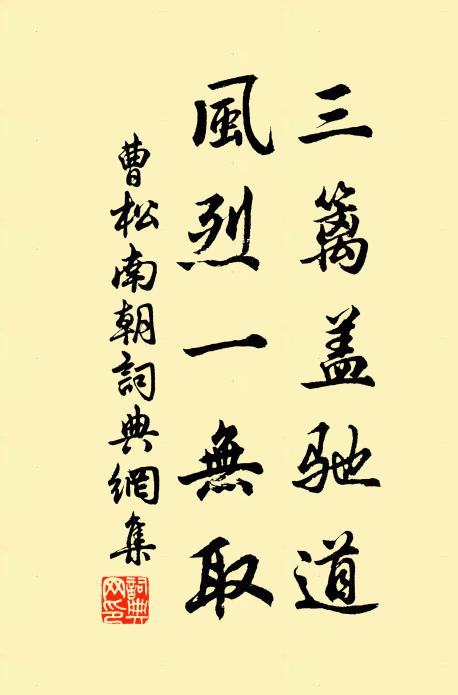 三篱盖馳道
風烈一無取
曹松南朝詞典網集
詞典网印